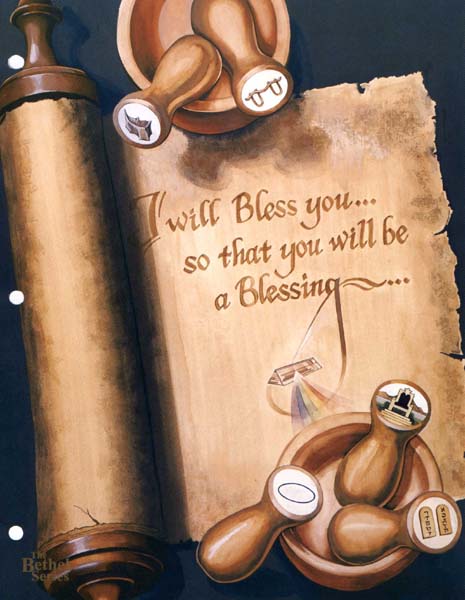 I will Bless you...
so that you will be
a Blessing~...
The
Bethel
Series